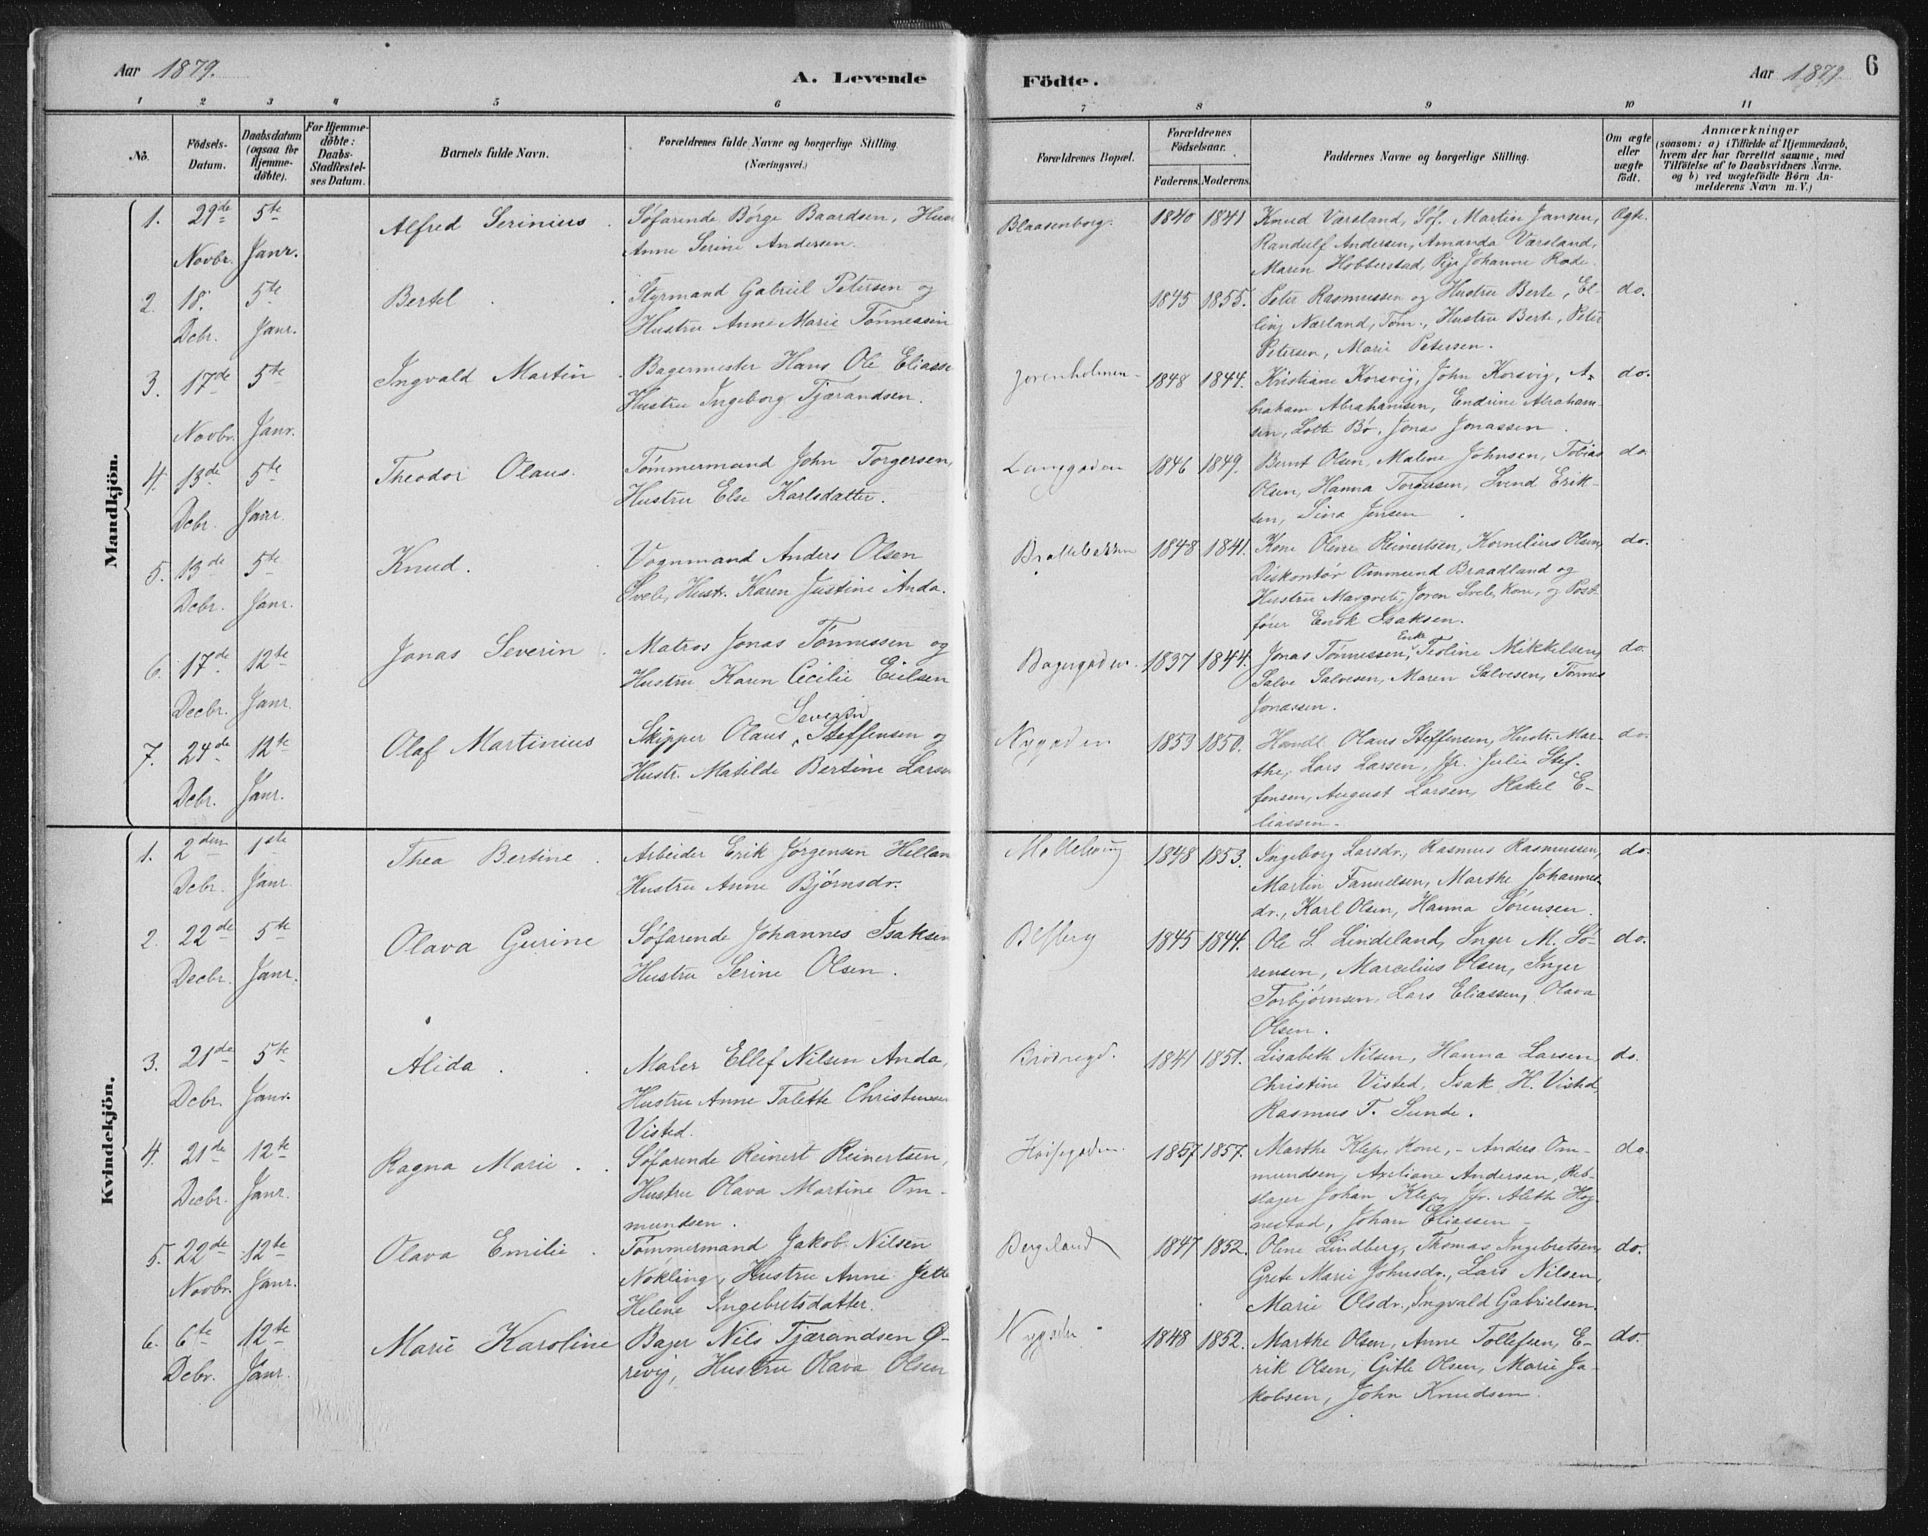 Aar 1879.
A. Levende
Födte.
Aar 1879
6
1 2 3 4 5 6 7 8 9 10 11
No.
Födsels-Datum.
Daabsdatum (ogsaa for Hjemmedöbte).
For Hjemmedöbte: Daabs-Stadfæstelses Datum.
Barnets fulde Navn.
Forældrenes fulde Navne og borgerlige Stilling. (Næringsvei.)
Forældrenes Bopæl.
Forældrenes Födselsaar.
Faderens. Moderens.
Faddernes Navne og borgerlige Stilling.
Om ægte eller uægte födt.
Anmærkninger
(saasom: a) i Tilfælde af Hjemmedaab, hvem der har forrettet samme, med Tilföielse af to Daabsvidners Navne, og b) ved uægtefödte Börn Anmelderens Navn m. V.)
Mandkjön.
1. 29de Novbr. 5te Janr. Alfred Serinius
Söfarende Börge Baardsen, Hust
Anne Serine Andersen.
Blaasenborg. 1840 1841
Knud Værsland, Söf. Martin Jansen,
Randulf Andersen, Amanda Værsland,
Maren Hobberstad, Pige Johanne Rode.
Ægte.
2. 18. Dcbr. 5te Janr. Bertel
Styrmand Gabriel Petersen og
Hustru Anne Marie Tönnessen
1845 1855.
Peter Rasmussen og Hustru Berte, El-
ling Nærland, Töm., Hustru Berte, Peter
Petersen, Marie Petersen.
do.
3. 17de Novbr. 5te Janr. Ingvald Martin
Bagermester Hans Ole Eliasse
Hustru Ingeborg Tjærandsen.
Jorenholmen 1848 1844.
Kristiane Korsvig, John Korsvig, A-
braham Abrahamsen, Endrine Abraham-
sen, Lotte Bö, Jonas Jonassen.
do.
4. 13de Dcbr. 5te Janr. Theodor Olaus.
Tömmermand John Torgersen,
Hustru Else Karlsdatter.
Langgaden 1846 1849.
Bernt Olsen, Malene Johnsen, Tobias
Olsen, Hanna Torgersen, Svend Erik-
sen, Sina Jensen.
do.
5. 13de Dcbr. 5te Janr. Knud.
Vognmand Anders Olsen
Svele, Hustr. Karen Justine Anda.
Brattebakken 1848 1841.
Kone Olene Reinertsen, Kornelius Olsen,
Diskontör Ommund Braadland og
Hustru Margrete, Joren Svele, Kone, og Post-
förer Enok Isaksen.
do.
6. 17de Decbr. 12te Janr. Jonas Severin
Matros Jonas Tönnessen og
Hustru Karen Cecilie Eielsen
Bagergaden. 1837 1844.
Jonas Tönnessen, Enke Teoline Mikkelsen,
Salve Salvesen, Maren Salvesen, Tönnes
Jonassen.
do.
7. 24de Dcbr. 12te Janr. Olaf Martinius
Skipper Olaus Severin Steffensen og
Hustr. Matilde Bertine Larse
Nygaden 1853 1850.
Handl. Olaus Steffensen, Hustr. Mar-
the, Lars Larsen, Jfr. Julie Stef-
fensen, August Larsen, Rakel E-
liassen.
do.
Kvindekjön.
1. 2den Dcbr. 1ste Janr. Thea Bertine.
Arbeider Erik Jörgensen Hellan
Hustru Anne Björnsdr.
1848 1853.
Ingeborg Larsdr., Rasmus Rasmussen,
Martin Fanuelsen, Marthe Johannes-
dr., Karl Olsen, Hanna Sörensen.
do.
2. 22de Decbr. 5te Janr. Olava Gurine
Söfarende Johannes Isaksen
Hustru Serine Olsen.
1845 1844.
Ole S. Lindeland, Inger M. Sö-
rensen, Marcelius Olsen, Inger
Torbjörnsen, Lars Eliassen, Olava
Olsen.
do.
3. 21de Dcbr. 5te Janr. Alida.
Maler Ellef Nilsen Anda,
Hustru Anne Talette Christensen
Visted.
1841 1851.
Lisabeth Nilsen, Hanna Larsen,
Christine Visted, Isak H. Visted,
Rasmus T. Sunde.
do.
4. 21de Decbr. 12te Janr. Ragna Marie.
Söfarende Reinert Reinertsen,
Hustru Olava Martine Om-
mundsen.
1857 1857.
Marthe Klep, Kone, - Anders Om-
mundsen, Axeliane Andersen, Reb-
slager Johan Klep, Jfr. Aleth Hog-
nestad, Johan Eliassen -
do.
5. 22de Novbr. 12te Janr. Olava Emilie.
Tömmermand Jakob Nilsen
Nökling, Hustru Anne Jette
Helene Ingebretsdatter.
Bergeland 1847 1852.
Olene Lindberg, Thomas Ingebretsen,
Grete Marie Johnsdr., Lars Nilsen,
Marie Olsdr., Ingvald Gabrielsen.
do.
6. 6te Dcbr. 12te Janr. Marie Karoline
Bager Nils Tjærandsen Ö-
revig, Hustru Olava Olsen
1848 1852.
Marthe Olsen, Anne Tollefsen, E-
rik Olsen, Gitle Olsen, Marie Ja-
kobsen, John Knudsen.
do.